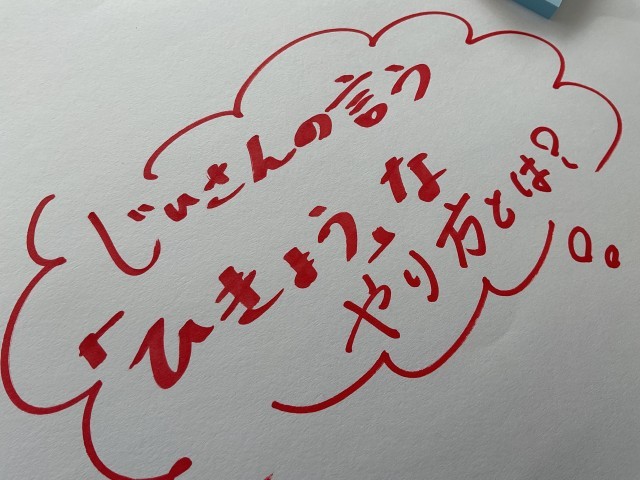 じいさんの言う
「ひきょう」な
やり方とは?